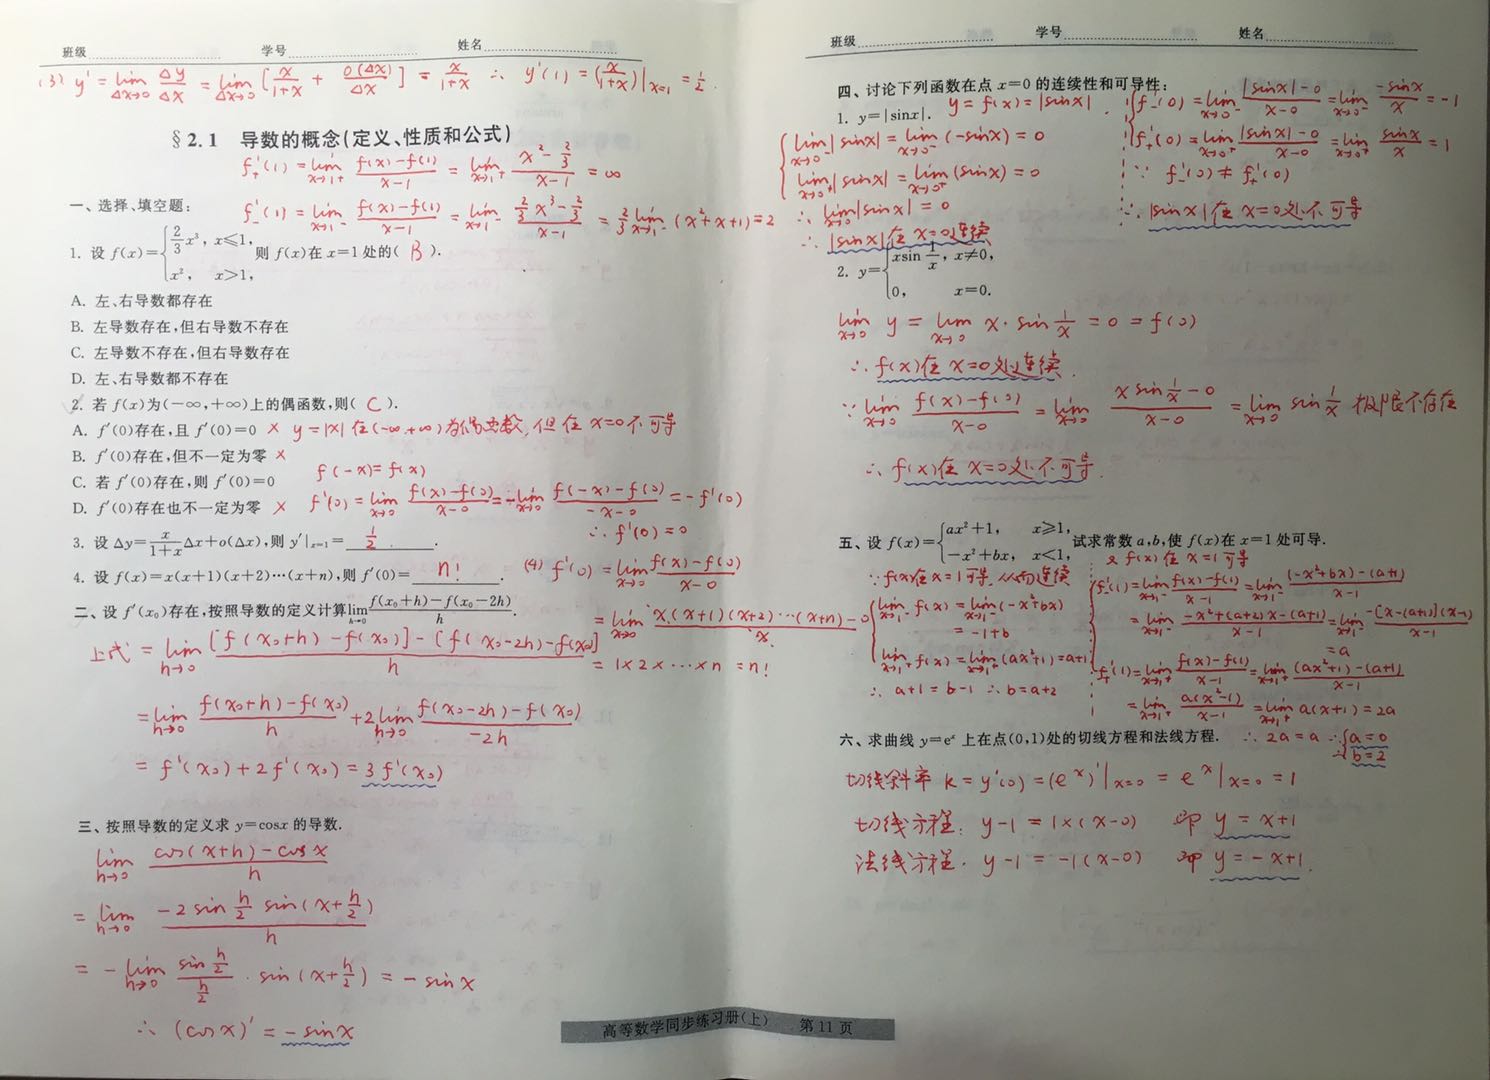 班级 学号 姓名
(3) y' = lim_{Δx→0} Δy/Δx = lim_{Δx→0} [x/(1+x) + o(Δx)/Δx] = x/(1+x) ∴ y'(1) = (x/(1+x))|_{x=1} = 1/2.
§2.1 导数的概念(定义、性质和公式)
f'₊(1) = lim_{x→1⁺} (f(x)-f(1))/(x-1) = lim_{x→1⁺} (x²-2/3)/(x-1) = ∞
一、选择、填空题:
f'₋(1) = lim_{x→1⁻} (f(x)-f(1))/(x-1) = lim_{x→1⁻} (2/3 x³-2/3)/(x-1) = 2/3 lim_{x→1⁻} (x²+x+1) = 2
1. 设 f(x)={2/3 x³, x⩽1, x², x>1, 则 f(x)在 x=1 处的( B ).
A. 左、右导数都存在
B. 左导数存在,但右导数不存在
C. 左导数不存在,但右导数存在
D. 左、右导数都不存在
2. 若 f(x)为(-∞,+∞)上的偶函数,则( C ).
A. f'(0)存在,且 f'(0)=0 × y=|x| 在(-∞,+∞)为偶函数,但在 x=0 不可导
B. f'(0)存在,但不一定为零 ×
f(-x)=f(x)
C. 若 f'(0)存在,则 f'(0)=0
D. f'(0)存在也不一定为零 × f'(0) = lim_{x→0} (f(x)-f(0))/(x-0) = -lim_{x→0} (f(-x)-f(0))/(-x-0) = -f'(0)
∴ f'(0)=0
3. 设 Δy=x/(1+x) Δx+o(Δx),则 y'|_{x=1}= 1/2 .
4. 设 f(x)=x(x+1)(x+2)⋯(x+n),则 f'(0)= n! . (4) f'(0) = lim_{x→0} (f(x)-f(0))/(x-0)
= lim_{x→0} (x(x+1)(x+2)⋯(x+n)-0)/x
= 1×2×⋯×n = n!
二、设 f'(x₀)存在,按照导数的定义计算 lim_{h→0} (f(x₀+h)-f(x₀-2h))/h.
上式 = lim_{h→0} ([f(x₀+h)-f(x₀)]-[f(x₀-2h)-f(x₀)])/h
= lim_{h→0} (f(x₀+h)-f(x₀))/h + 2 lim_{h→0} (f(x₀-2h)-f(x₀))/(-2h)
= f'(x₀)+2f'(x₀) = 3f'(x₀)
三、按照导数的定义求 y=cosx 的导数.
lim_{h→0} (cos(x+h)-cosx)/h
= lim_{h→0} (-2sin h/2 sin(x+h/2))/h
= -lim_{h→0} (sin h/2)/(h/2) · sin(x+h/2) = -sinx
∴ (cosx)' = -sinx
班级 学号 姓名
四、讨论下列函数在点 x=0 的连续性和可导性:
1. y=|sinx|. y=f(x)=|sinx|.
{lim_{x→0⁻} |sinx| = lim_{x→0⁻} (-sinx) = 0
lim_{x→0⁺} |sinx| = lim_{x→0⁺} (sinx) = 0
∴ lim_{x→0} |sinx| = 0
∴ |sinx| 在 x=0 连续
{f'₋(0) = lim_{x→0⁻} (|sinx|-0)/(x-0) = lim_{x→0⁻} (-sinx)/x = -1
f'₊(0) = lim_{x→0⁺} (|sinx|-0)/(x-0) = lim_{x→0⁺} sinx/x = 1
∵ f'₋(0) ≠ f'₊(0)
∴ |sinx| 在 x=0 处不可导
2. y={xsin 1/x, x≠0, 0, x=0.
lim_{x→0} y = lim_{x→0} x·sin 1/x = 0 = f(0)
∴ f(x)在 x=0 处连续.
∵ lim_{x→0} (f(x)-f(0))/(x-0) = lim_{x→0} (x sin 1/x - 0)/(x-0) = lim_{x→0} sin 1/x 极限不存在
∴ f(x)在 x=0 处不可导.
五、设 f(x)={ax²+1, x⩾1, -x²+bx, x<1, 试求常数 a,b,使 f(x)在 x=1 处可导.
∵ f(x)在 x=1 可导,从而连续
{lim_{x→1⁻} f(x) = lim_{x→1⁻} (-x²+bx)
= -1+b
lim_{x→1⁺} f(x) = lim_{x→1⁺} (ax²+1) = a+1
∴ a+1=b-1 ∴ b=a+2
又 f(x)在 x=1 可导
{f'₋(1) = lim_{x→1⁻} (f(x)-f(1))/(x-1) = lim_{x→1⁻} ((-x²+bx)-(a+1))/(x-1)
= lim_{x→1⁻} (-x²+(a+2)x-(a+1))/(x-1) = lim_{x→1⁻} (-[x-(a+1)](x-1))/(x-1)
= a
f'₊(1) = lim_{x→1⁺} (f(x)-f(1))/(x-1) = lim_{x→1⁺} ((ax²+1)-(a+1))/(x-1)
= lim_{x→1⁺} a(x²-1)/(x-1) = lim_{x→1⁺} a(x+1) = 2a
∴ 2a=a ∴ {a=0 b=2
六、求曲线 y=eˣ 上在点(0,1)处的切线方程和法线方程.
切线斜率 k=y'(0)=(eˣ)'|_{x=0} = eˣ|_{x=0} = 1
切线方程: y-1=1×(x-0) 即 y=x+1
法线方程. y-1=-1(x-0) 即 y=-x+1.
高等数学同步练习册(上) 第11页